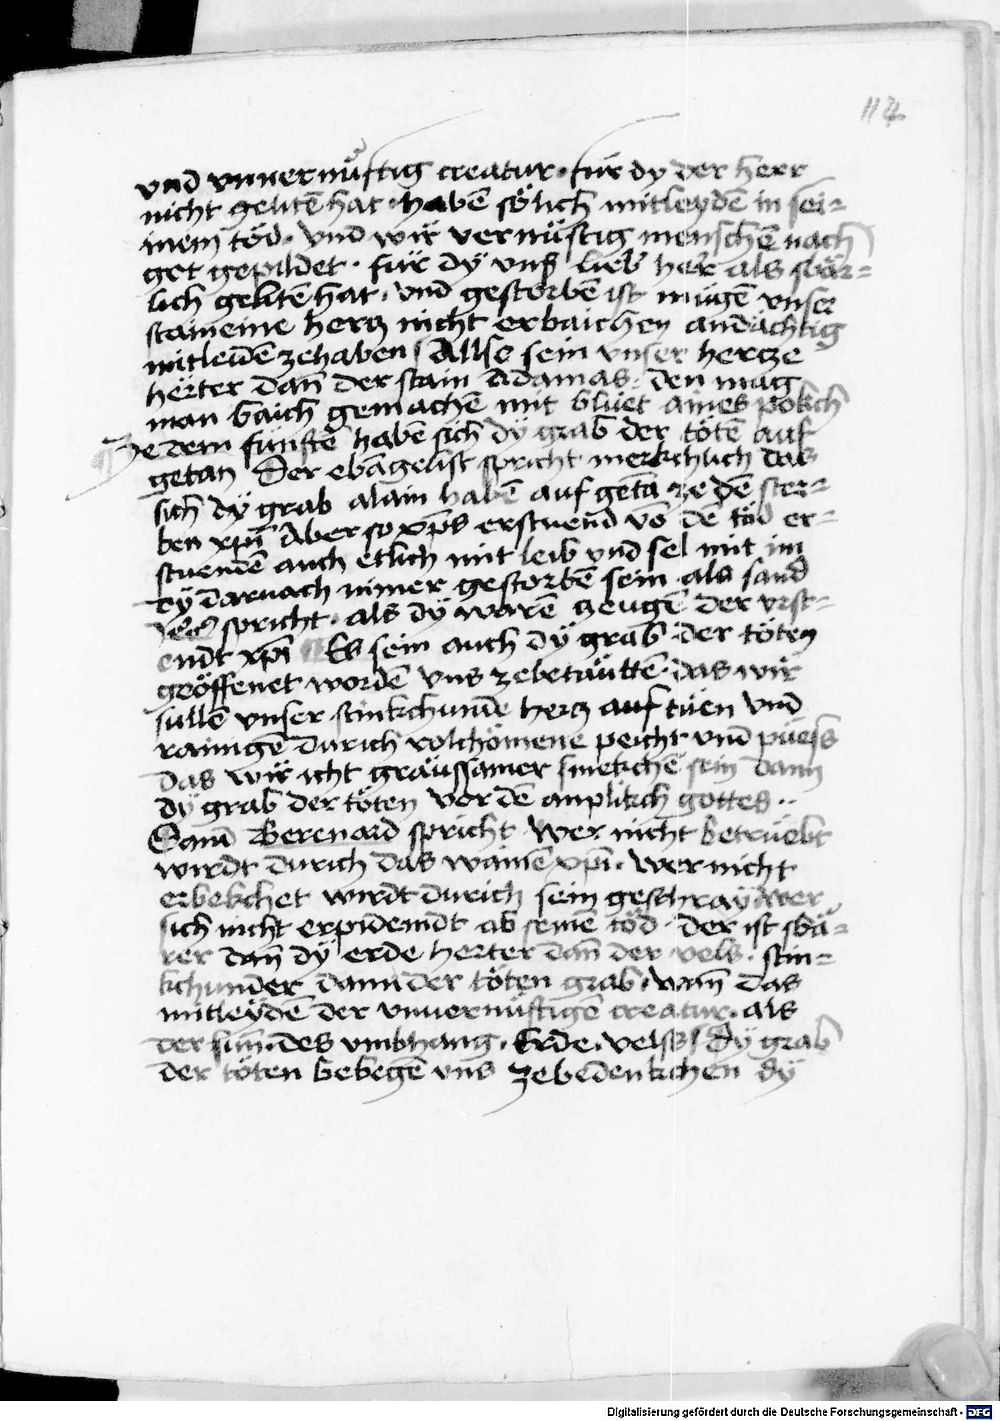 114
vnd vnuernüftig creatur · für dy der herr
nicht gelitē hat · habē sölich mitleydē in sei-
inem töd · vnd wir vernüftig menschē nach
got gepildet · für dÿ vnß lieb̓ her als sbär-
lich gelitē hat · vnd gestorbē ist mügē vnser
staineine hercz nicht erbaichen andächtig
mitleidē zehaben Allso sein vnser hercze
herter dan̄ der stain Adamas · den mag
man baich gemachē mit blüet aines pokch
Ze dem fünftē habē sich dÿ grab der tötē auf
getan Der ebāgelist spricht merkchlich das
sich dÿ grab alain habē auf getā ze dē ster-
ben xp̄i Aber so xp̄s erstuend vō dē töd er-
stuendē auch etlich mit leib vnd sel mit im
dÿ darnach nimer gestorbē sein als sand
spricht · als dÿ warē zeugē der vrst-
endt xp̄i Es sein auch dÿ grab der tötē
geöffenet wordē vns zebetäuttē · das wir
sullē vnser stinkchunde hercz auf tüen vnd
rainigē durich volchömene peicht vnd püeiss
das wir icht gräussamer smekchē sein dann
dÿ grab der töten vor dē anplikch gottes ··
Sand Berenard spricht Wer nicht betrüebt
wirdt durich das wainē xp̄i · wer nicht
erbekchet wirdt durich sein geschray wer
sich nicht erpidemdt ab seinē töd · der ist sbä-
rer dan̄ dÿ erde herter dan̄ der vels · stin-
kchunder dann der töten grab · wan̄ das
mitleydē der vnuernüftigē creatur · als
der sun̄ · des vmbhang · Erde · velss Dy grab
der töten bebegē vns zebedenkchen dÿ
Digitalisierung gefördert durch die Deutsche Forschungsgemeinschaft - DFG